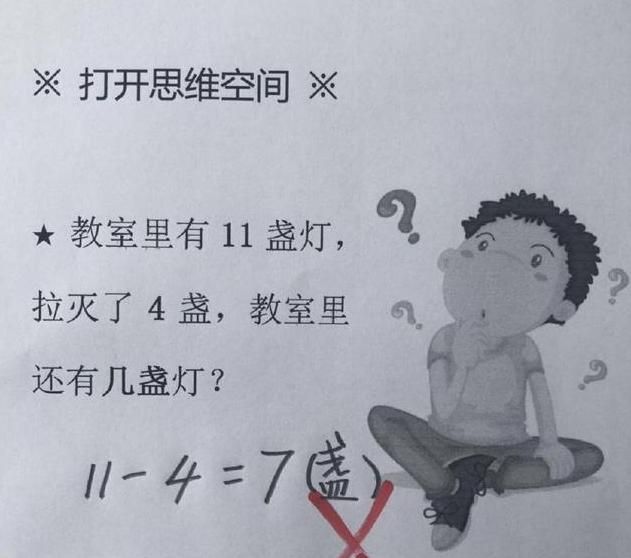 ※ 打开思维空间 ※
★ 教室里有 11 盏灯，
拉灭了 4 盏，教室里
还有几盏灯？
11-4=7(盏)